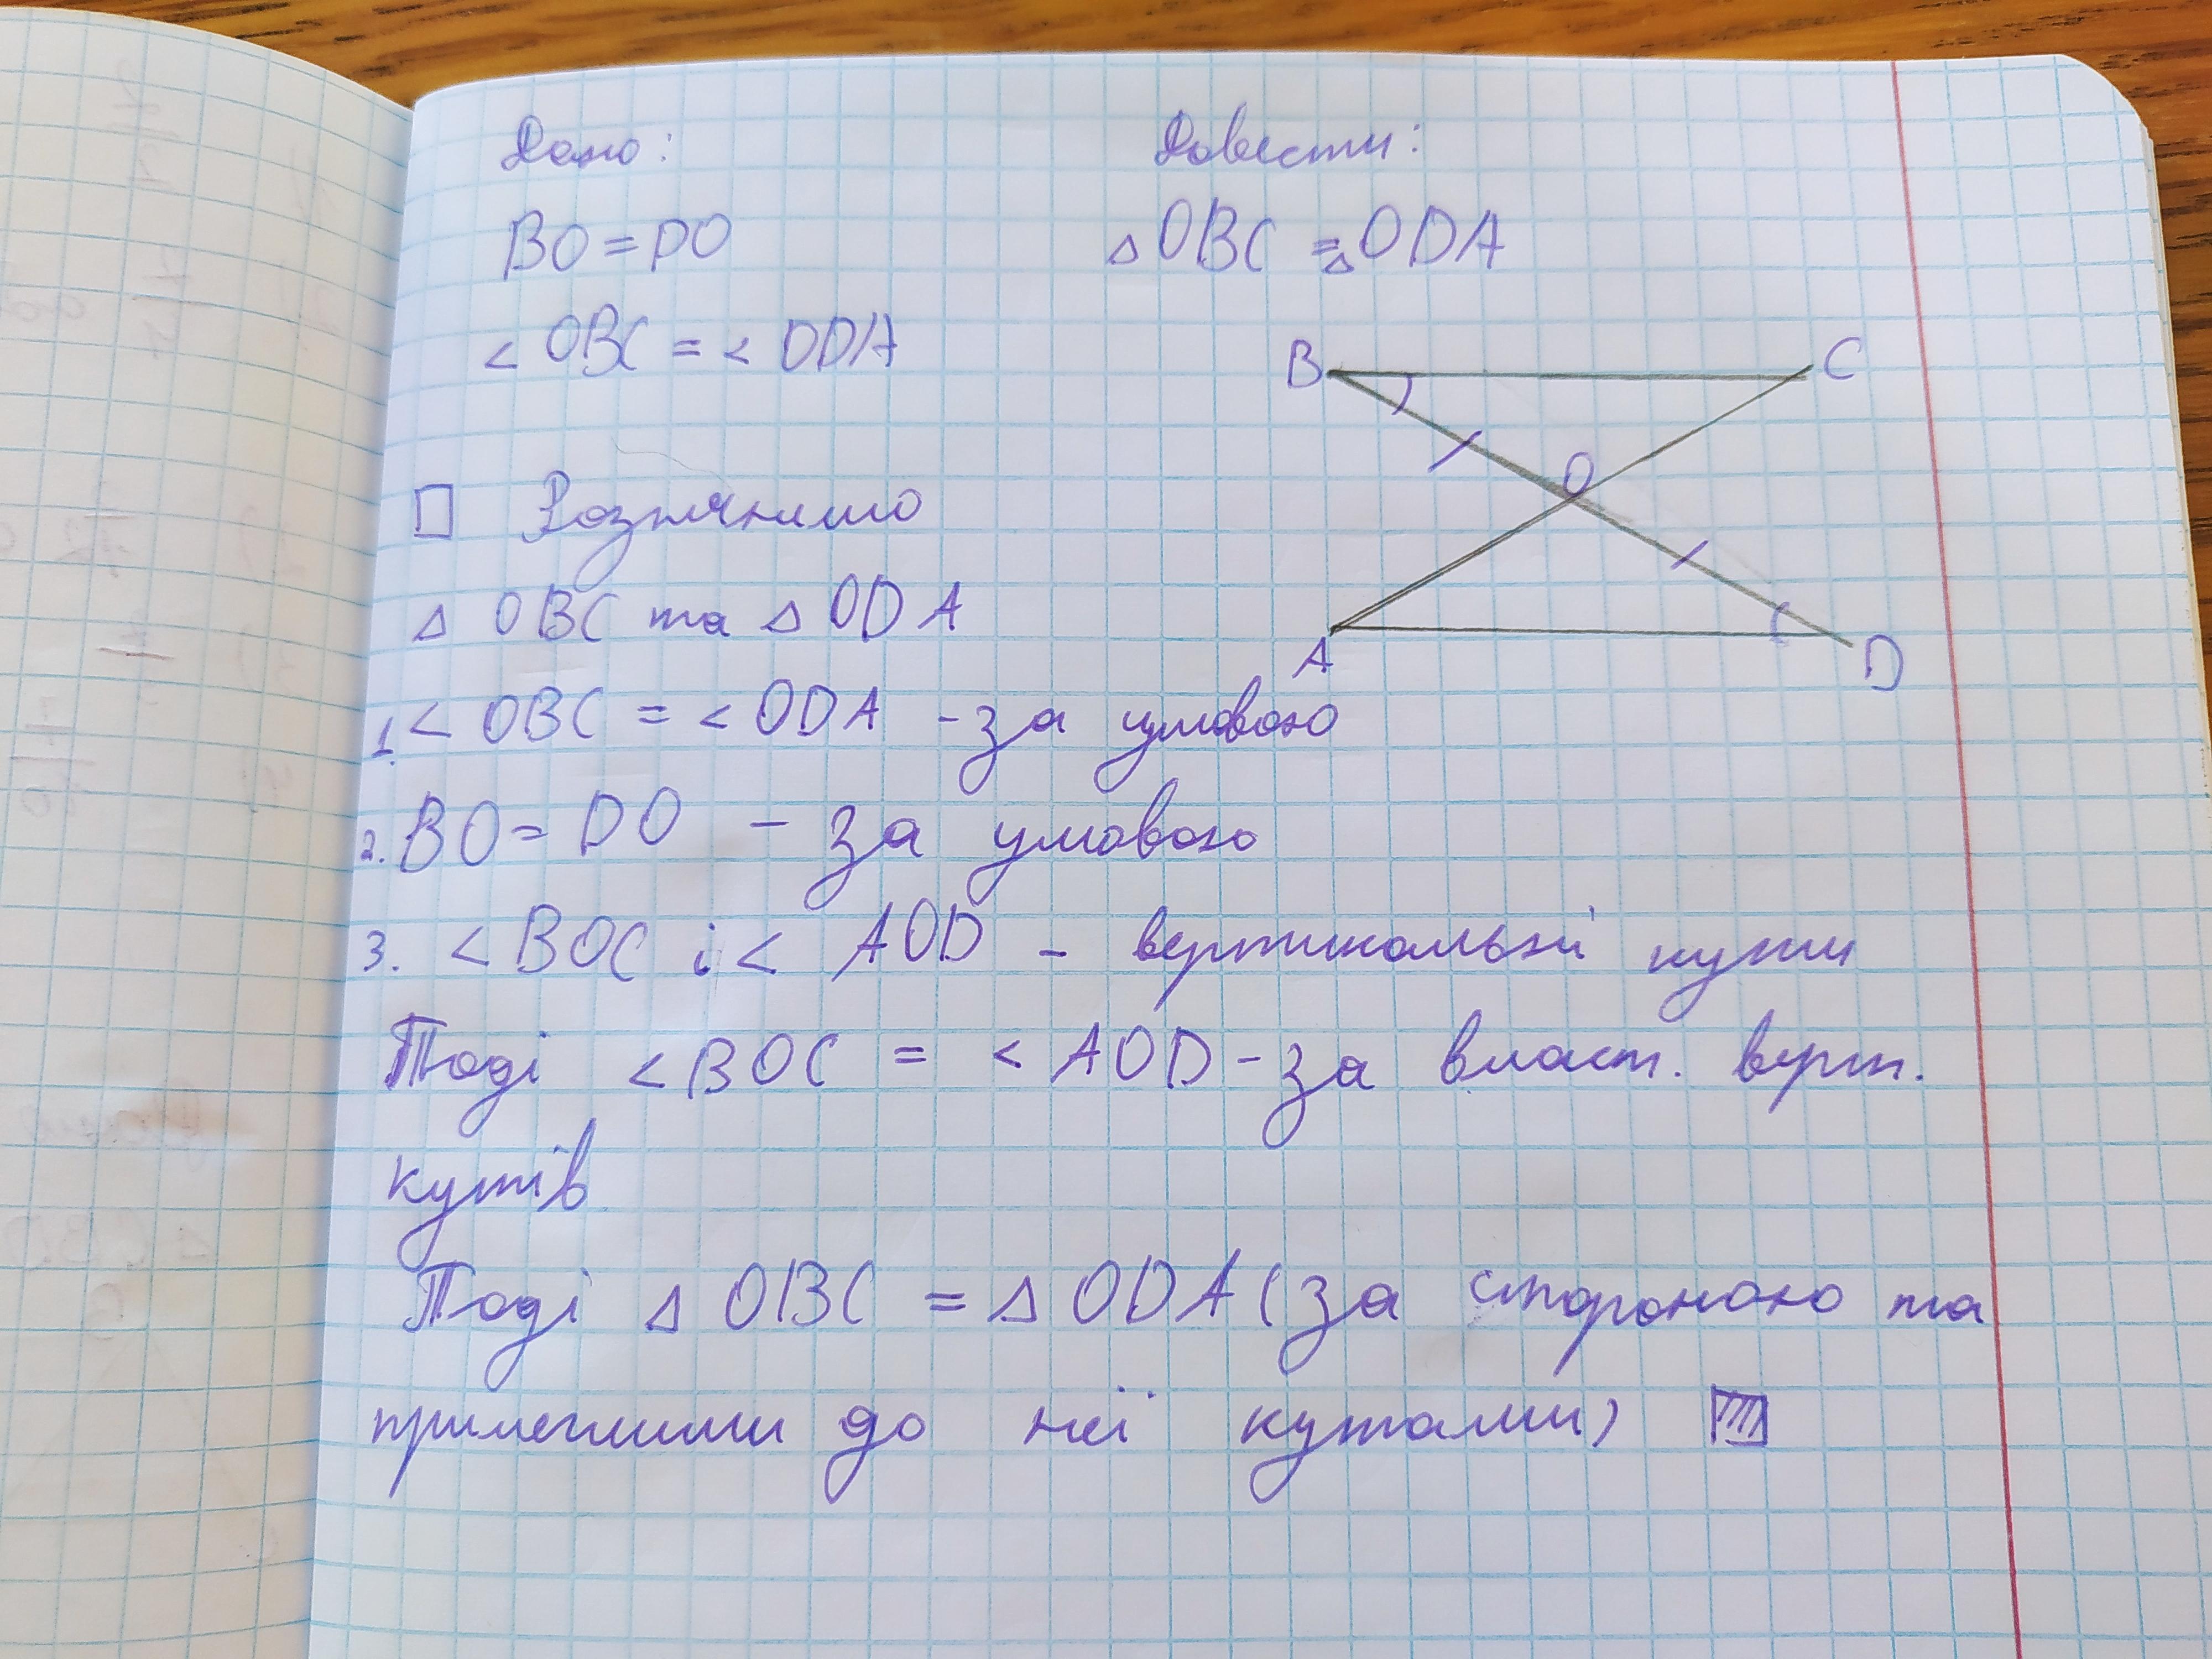 Дано:
Довести:
BO = DO
△ OBC = △ ODA
< OBC = < ODA
B
C
O
A
D
□ Розглянемо
△ OBC та △ ODA
1. < OBC = < ODA - за умовою
2. BO = DO - за умовою
3. < BOC і < AOD - вертикальні кути
Тоді < BOC = < AOD - за власт. верт.
кутів
Тоді △ OBC = △ ODA (за стороною та
прилеглими до неї кутами)